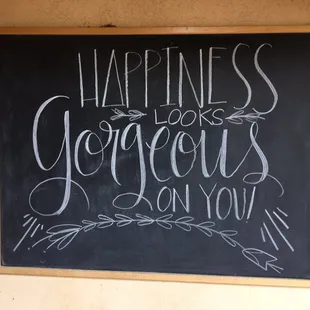 HAPPINESS
LOOKS
Gorgeous
ON YOU!